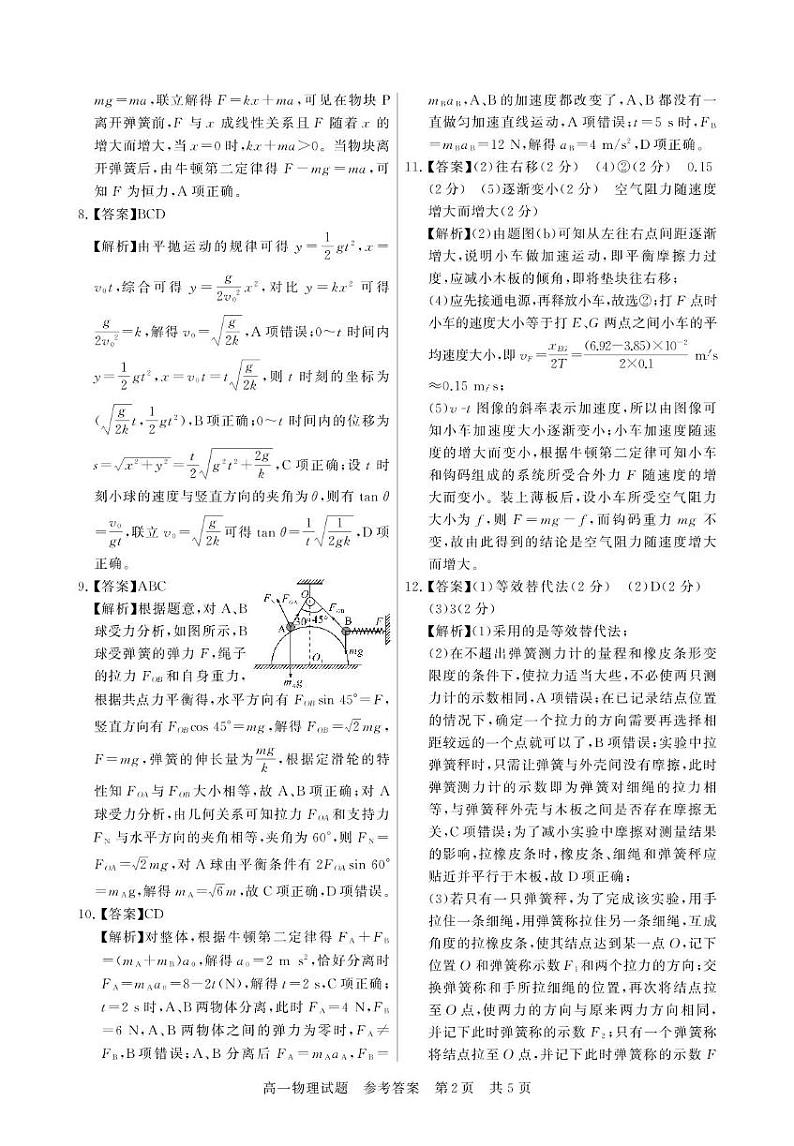 mg=ma,联立解得 F=kx+ma,可见在物块 P
离开弹簧前,F 与 x 成线性关系且 F 随着 x 的
增大而增大,当 x=0 时,kx+ma>0。当物块离
开弹簧后,由牛顿第二定律得 F-mg=ma,可
知 F 为恒力,A 项正确。
8.【答案】BCD
【解析】由平抛运动的规律可得 y=\frac{1}{2}gt²,x=
v₀t,综合可得 y=\frac{g}{2v₀²}x²,对比 y=kx² 可得
\frac{g}{2v₀²}=k,解得 v₀=\sqrt{\frac{g}{2k}},A 项错误;0~t 时间内
y=\frac{1}{2}gt²,x=v₀t=t\sqrt{\frac{g}{2k}},则 t 时刻的坐标为
(\sqrt{\frac{g}{2k}}t,\frac{1}{2}gt²),B 项正确;0~t 时间内的位移为
s=\sqrt{x²+y²}=\frac{t}{2}\sqrt{g²t²+\frac{2g}{k}},C 项正确;设 t 时
刻小球的速度与竖直方向的夹角为 θ,则有 tan θ
=\frac{v₀}{gt},联立 v₀=\sqrt{\frac{g}{2k}}可得 tan θ=\frac{1}{t}\sqrt{\frac{1}{2gk}},D 项
正确。
9.【答案】ABC
【解析】根据题意,对 A、B
球受力分析,如图所示,B
球受弹簧的弹力 F,绳子
的拉力 F_{OB}和自身重力,
O
F_{OA}
F_{OB}
30°
45°
A
B
F
mg
O₁
m_A g
根据共点力平衡得,水平方向有 F_{OB}sin 45°=F,
竖直方向有 F_{OB}cos 45°=mg,解得 F_{OB}=\sqrt{2}mg,
F=mg,弹簧的伸长量为\frac{mg}{k},根据定滑轮的特
性知 F_{OA}与 F_{OB}大小相等,故 A、B 项正确;对 A
球受力分析,由几何关系可知拉力 F_{OA}和支持力
F_N 与水平方向的夹角相等,夹角为 60°,则 F_N=
F_{OA}=\sqrt{2}mg,对 A 球由平衡条件有 2F_{OA}sin 60°
=m_A g,解得 m_A=\sqrt{6}m,故 C 项正确,D 项错误。
10.【答案】CD
【解析】对整体,根据牛顿第二定律得 F_A+F_B
=(m_A+m_B)a₀,解得 a₀=2 m s²,恰好分离时
F_A=m_A a₀=8-2t(N),解得 t=2 s,C 项正确;
t=2 s 时,A、B 两物体分离,此时 F_A=4 N,F_B
=6 N,A、B 两物体之间的弹力为零时,F_A≠
F_B,B 项错误;A、B 分离后 F_A=m_A a_A,F_B=
m_B a_B,A、B 的加速度都改变了,A、B 都没有一
直做匀加速直线运动,A 项错误;t=5 s 时,F_B
=m_B a_B=12 N,解得 a_B=4 m/s²,D 项正确。
11.【答案】(2)往右移(2 分) (4)②(2 分) 0.15
(2 分) (5)逐渐变小(2 分) 空气阻力随速度
增大而增大(2 分)
【解析】(2)由题图(b)可知从左往右点间距逐渐
增大,说明小车做加速运动,即平衡摩擦力过
度,应减小木板的倾角,即将垫块往右移;
(4)应先接通电源,再释放小车,故选②;打 F 点时
小车的速度大小等于打 E、G 两点之间小车的平
均速度大小,即 v_F=\frac{x_{EG}}{2T}=\frac{(6.92-3.85)×10⁻²}{2×0.1} m/s
≈0.15 m/s;
(5)v-t 图像的斜率表示加速度,所以由图像可
知小车加速度大小逐渐变小;小车加速度随速
度的增大而变小,根据牛顿第二定律可知小车
和钩码组成的系统所受合外力 F 随速度的增
大而变小。装上薄板后,设小车所受空气阻力
大小为 f,则 F=mg-f,而钩码重力 mg 不
变,故由此得到的结论是空气阻力随速度增大
而增大。
12.【答案】(1)等效替代法(2 分) (2)D(2 分)
(3)3(2 分)
【解析】(1)采用的是等效替代法;
(2)在不超出弹簧测力计的量程和橡皮条形变
限度的条件下,使拉力适当大些,不必使两只测
力计的示数相同,A 项错误;在已记录结点位置
的情况下,确定一个拉力的方向需要再选择相
距较远的一个点就可以了,B 项错误;实验中拉
弹簧秤时,只需让弹簧与外壳间没有摩擦,此时
弹簧测力计的示数即为弹簧对细绳的拉力相
等,与弹簧秤外壳与木板之间是否存在摩擦无
关,C 项错误;为了减小实验中摩擦对测量结果
的影响,拉橡皮条时,橡皮条、细绳和弹簧秤应
贴近并平行于木板,故 D 项正确;
(3)若只有一只弹簧秤,为了完成该实验,用手
拉住一条细绳,用弹簧称拉住另一条细绳,互成
角度的拉橡皮条,使其结点达到某一点 O,记下
位置 O 和弹簧称示数 F₁和两个拉力的方向;交
换弹簧称和手所拉细绳的位置,再次将结点拉
至 O 点,使两力的方向与原来两力方向相同,
并记下此时弹簧称的示数 F₂;只有一个弹簧称
将结点拉至 O 点,并记下此时弹簧称的示数 F
高一物理试题 参考答案 第 2 页 共 5 页